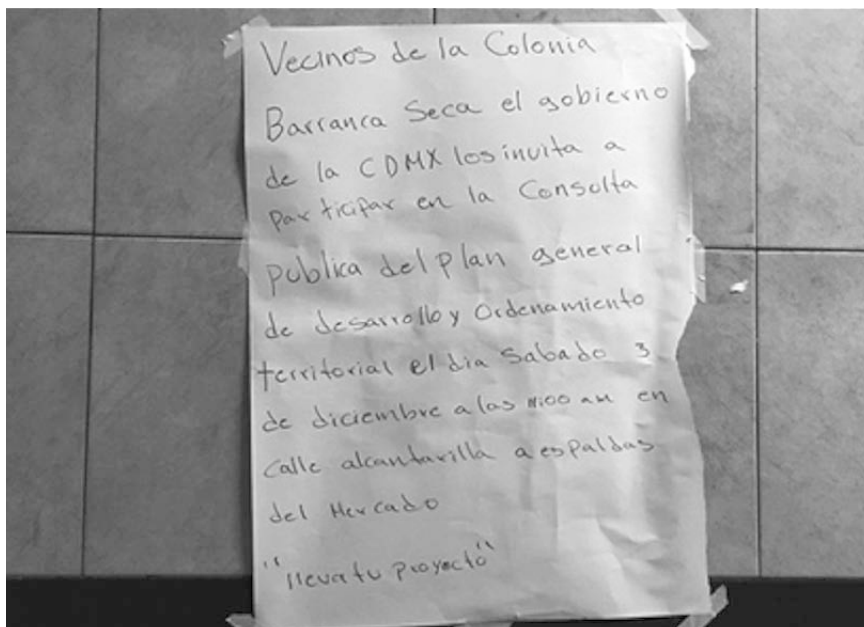 Vecinos de la Colonia
Barranca Seca el gobierno
de la CDMX los invita a
participar en la Consulta
publica del plan general
de desarrollo y Ordenamiento
territorial el dia Sabado 3
de diciembre a las 11:00 am en
calle alcantarilla a espaldas
del Mercado
"lleva tu proyecto"